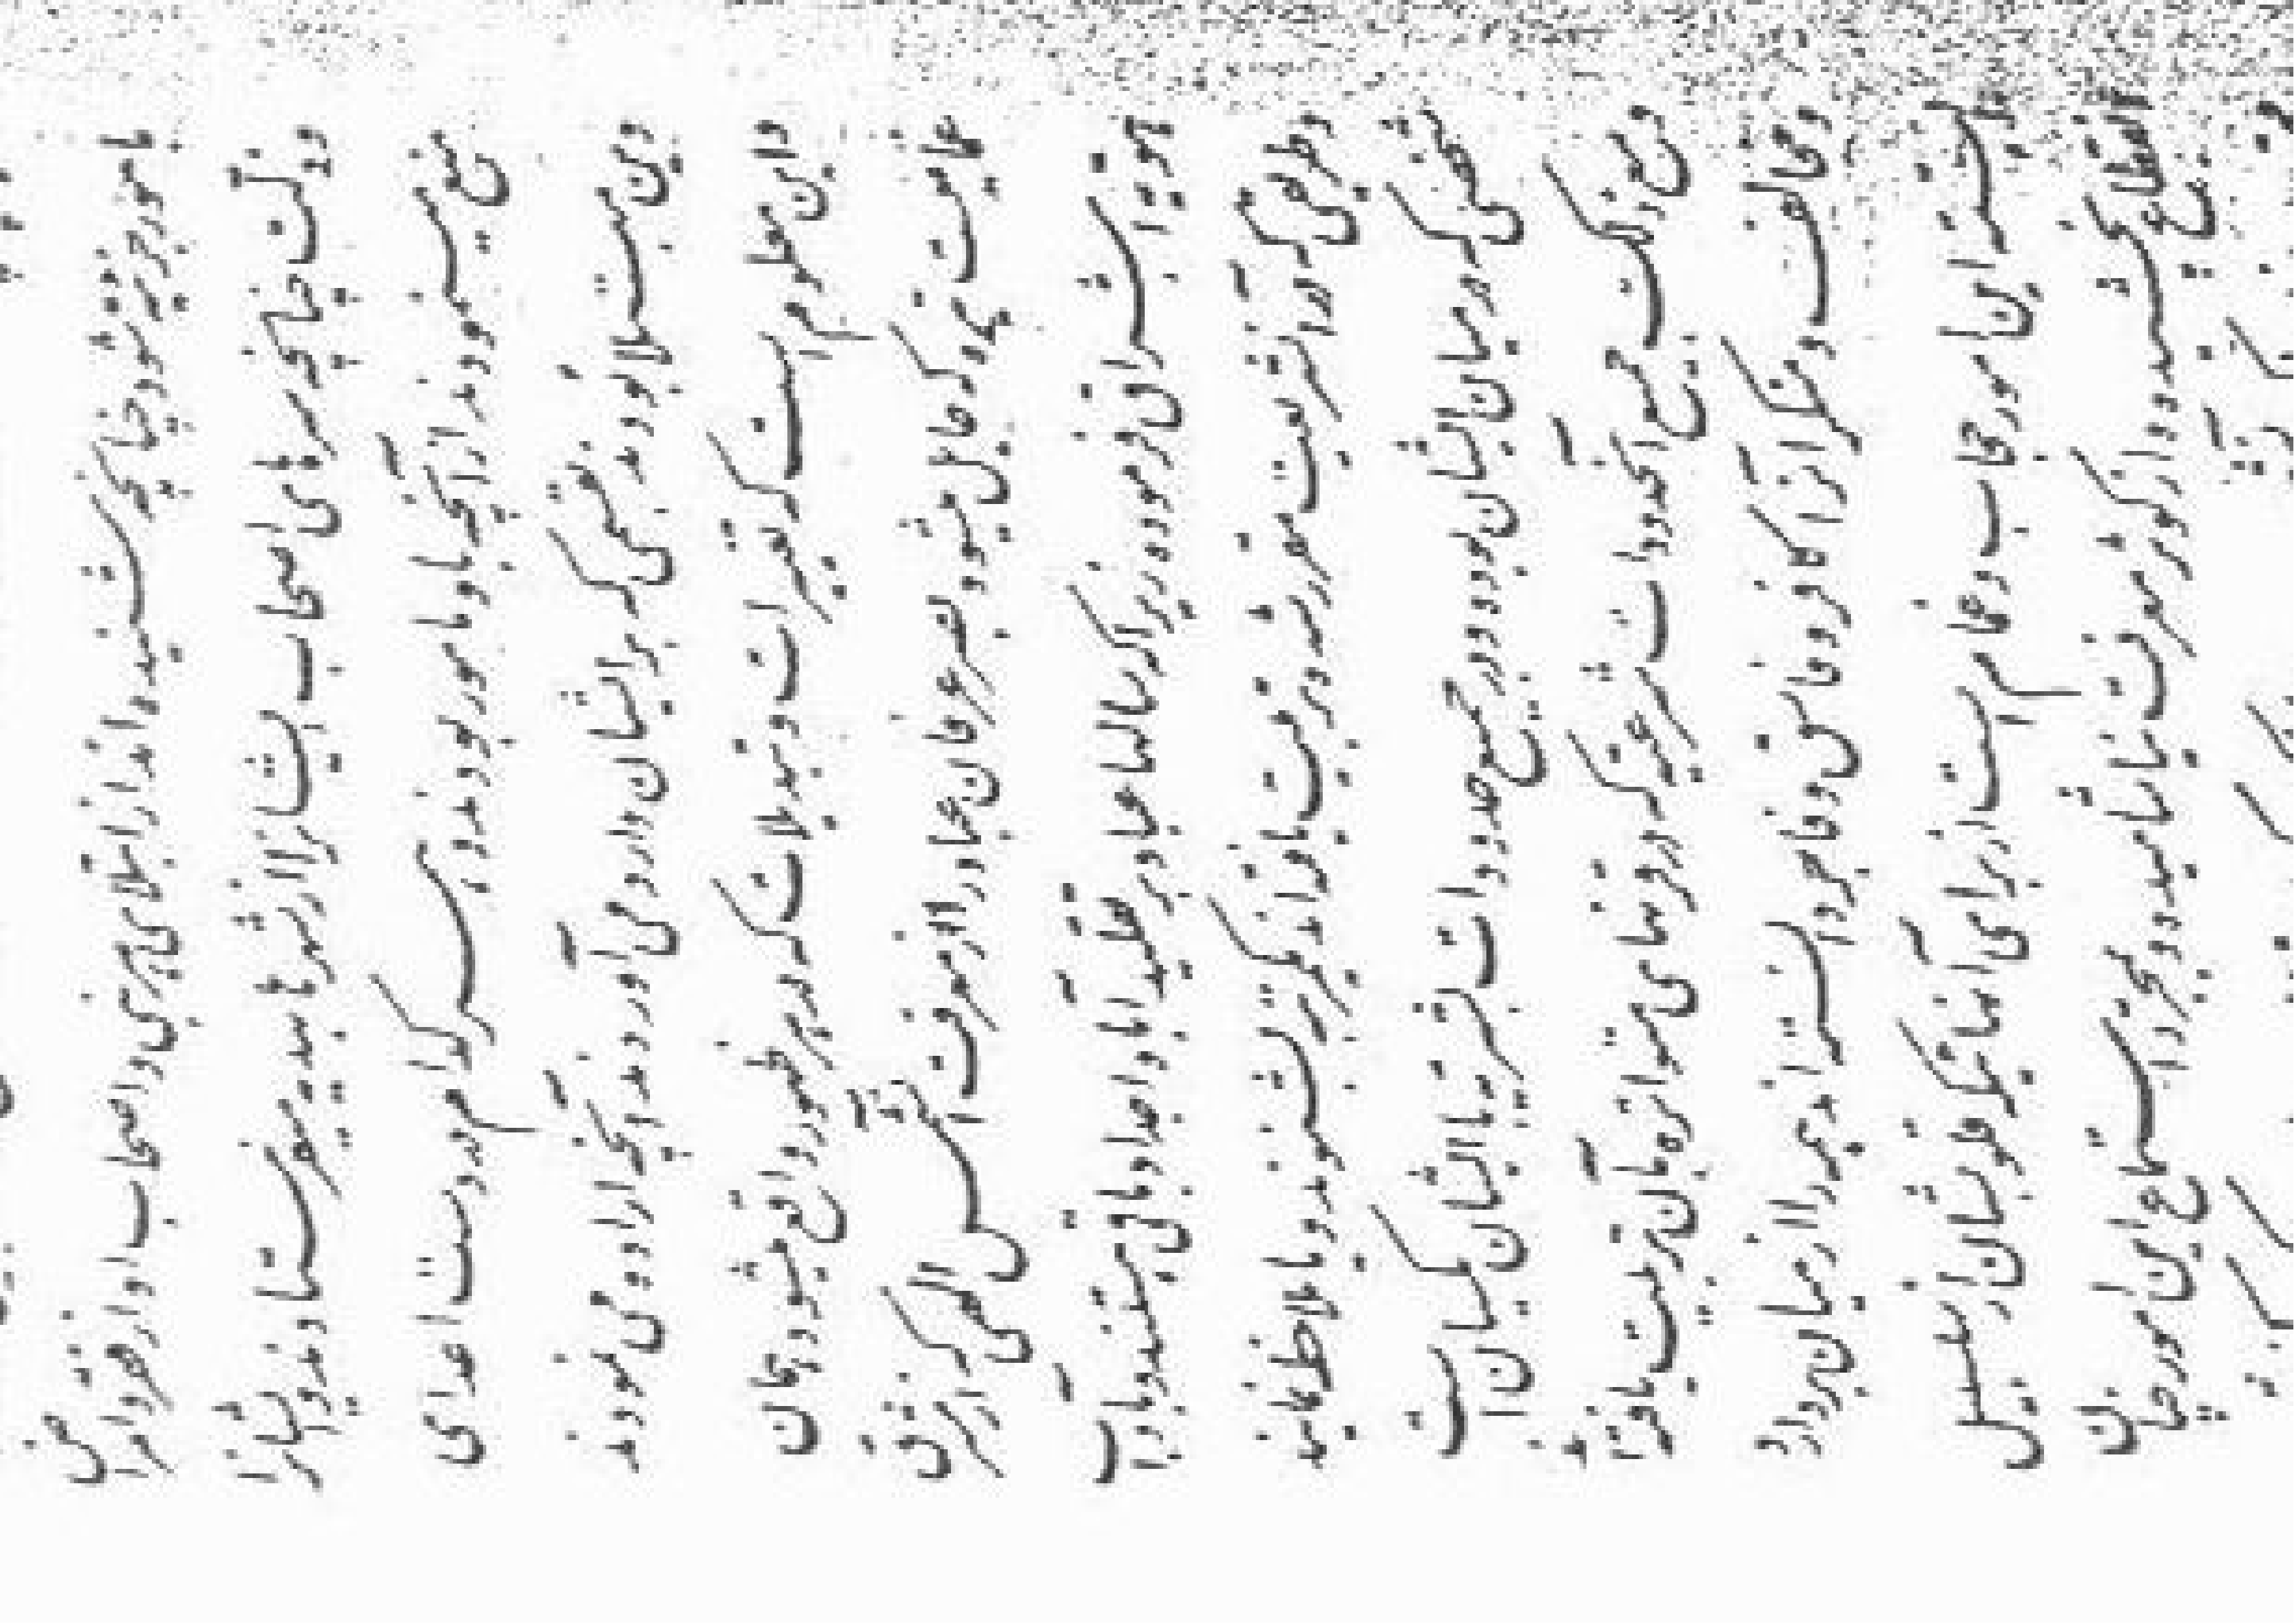 مامور بحرب نشود چنانچه شنیده‌اند از ابتلای هر نبی و اصحاب او از فقر و امراض
و ذلت چنانچه سرهای اصحاب ایشانرا در شهرها بهدیه میفرستادند و ایشانرا
منع مینمودند از آنچه باو مامور بودند و هر کدام در دست اعدای
دین مبتلا بودند بقسمی که بر ایشان وارد می‌آوردند آنچه اراده مینمودند
و این معلوم است که تغییرات و تبدیلات که در هر ظهور واقع میشود همان
غمامیست تیره که حایل میشود بصر عرفان عباد را از معرفت آن شمس الهی که از مشرق
هویه اشراق فرموده زیرا که سالها عباد بر تقلید آبا و اجداد باقی هستند و بآداب
و طریقی که در آن شریعت مقرر شده تربیت یافته‌اند یکمرتبه بشنوند و یا ملاحظه نمایند
شخصی که در میان ایشان بوده و در جمیع حدودات بشریه با ایشان یکسان است
و مع ذلک جمیع آن حدودات شرعیه که در قرنهای متواتره بآن تربیت یافته‌اند
و مخالف و منکر آنرا کافر و فاسق و فاجر دانسته‌اند جمیع را از میان بردارد
البته این امور حجاب و غمام است از برای آنهائیکه قلوبشان از سلسبیل
انقطاع نچشیده و از کوثر معرفت نیاشامیده و بمجرد استماع این امور چنان